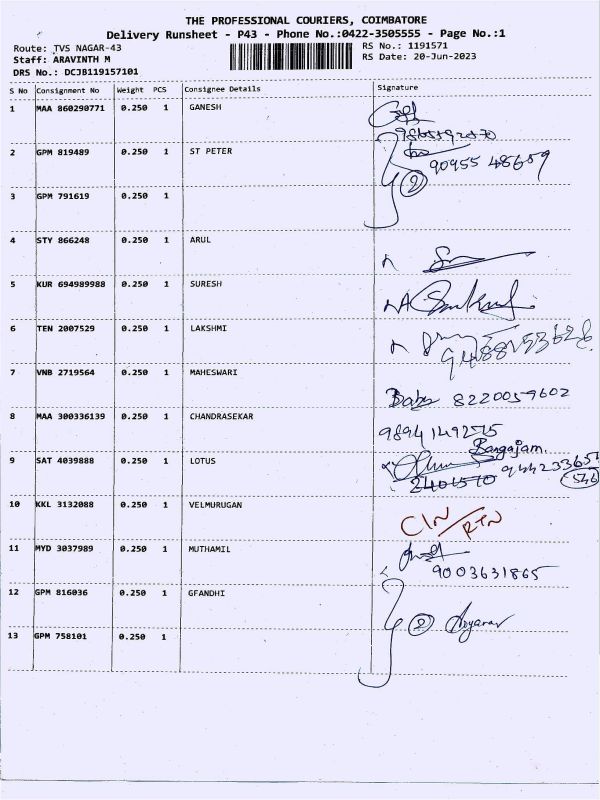 THE PROFESSIONAL COURIERS, COIMBATORE
Delivery Runsheet - P43 - Phone No.:0422-3505555 - Page No.:1
Route: TVS NAGAR-43 RS No.: 1191571
Staff: ARAVINTH M RS Date: 20-Jun-2023
DRS No.: DCJB119157101
S No Consignment No Weight PCS Consignee Details Signature
1 MAA 860290771 0.250 1 GANESH
2 GPM 819489 0.250 1 ST PETER
90955 48659
2
3 GPM 791619 0.250 1
4 STY 866248 0.250 1 ARUL
5 KUR 694989988 0.250 1 SURESH
6 TEN 2007529 0.250 1 LAKSHMI
7 VNB 2719564 0.250 1 MAHESWARI
8220059602
8 MAA 300336139 0.250 1 CHANDRASEKAR
9894149275
9 SAT 4039888 0.250 1 LOTUS
10 KKL 3132088 0.250 1 VELMURUGAN
CIN/RTN
11 MYD 3037989 0.250 1 MUTHAMIL
9003631865
12 GPM 816036 0.250 1 GFANDHI
2
13 GPM 758101 0.250 1